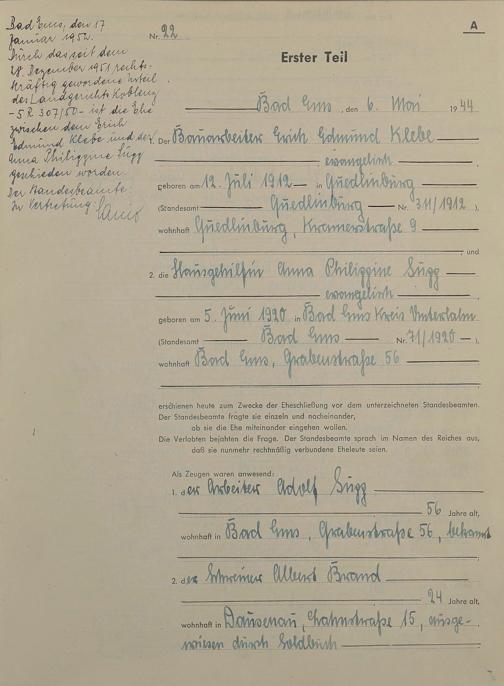 Bad Ems, den 17
Januar 1952.
Durch das seit dem
28. Dezember 1951 rechts-
kräftig gewordene Urteil
des Landgerichts Koblenz
- 5 R 307/50 - ist die Ehe
zwischen dem Erich
Edmund Klebe und der
Anna Philippine Sugg
geschieden worden.
Der Standesbeamte
In Vertretung:
A
Nr. 22
Erster Teil
Bad Ems, den 6. Mai 1944
1. Der Bauarbeiter Erich Edmund Klebe
evangelisch
geboren am 12. Juli 1912 in Quedlinburg
(Standesamt Quedlinburg Nr. 311/1912 ),
wohnhaft Quedlinburg, Kramerstraße 9
; und
2. die Hausgehilfin Anna Philippine Sugg
evangelisch
geboren am 5. Juni 1920 in Bad Ems Kreis Unterlahn
(Standesamt Bad Ems Nr. 71/1920 ),
wohnhaft Bad Ems, Grabenstraße 56
erschienen heute zum Zwecke der Eheschließung vor dem unterzeichneten Standesbeamten.
Der Standesbeamte fragte sie einzeln und nacheinander,
ob sie die Ehe miteinander eingehen wollen.
Die Verlobten bejahten die Frage. Der Standesbeamte sprach im Namen des Reiches aus,
daß sie nunmehr rechtmäßig verbundene Eheleute seien.
Als Zeugen waren anwesend:
1. der Arbeiter Adolf Sugg
56 Jahre alt,
wohnhaft in Bad Ems, Grabenstraße 56, bekannt
2. der Schreiner Albert Brand
24 Jahre alt,
wohnhaft in Dausenau, Lahnstraße 15, ausge-
wiesen durch Soldbuch